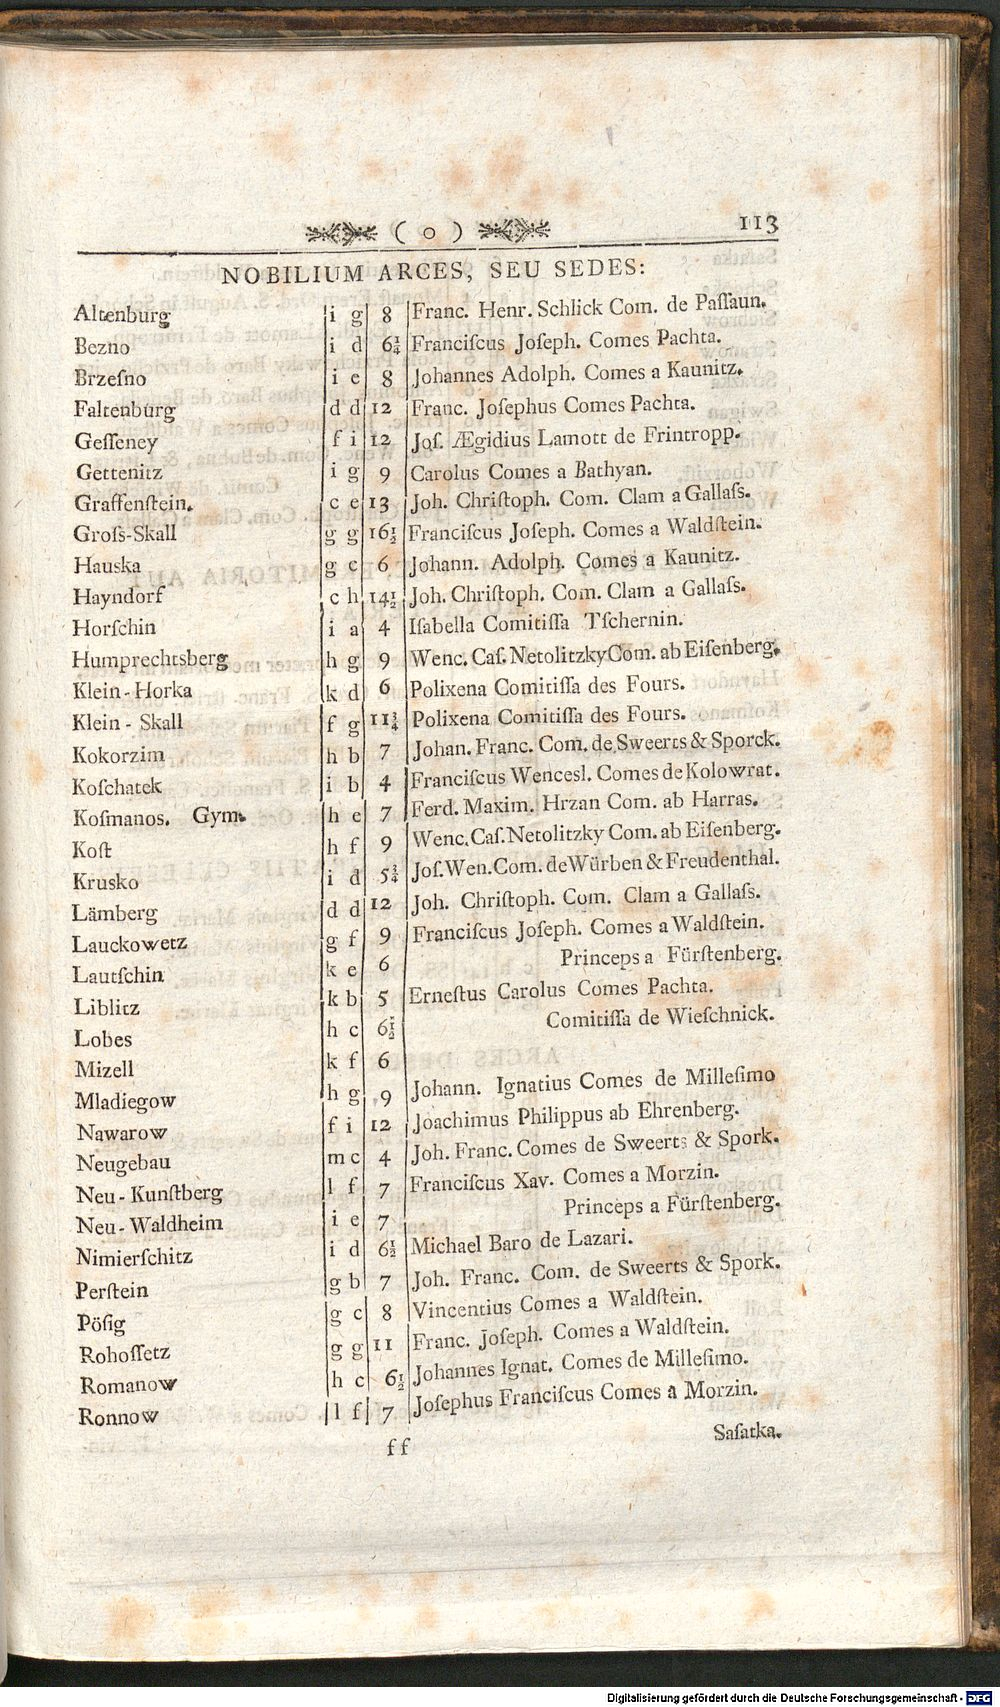 ( o ) 113
NOBILIUM ARCES, SEU SEDES:
Altenburg i g 8 Franc. Henr. Schlick Com. de Paſſaun.
Bezno i d 6¼ Franciſcus Joſeph. Comes Pachta.
Brzeſno i e 8 Johannes Adolph. Comes a Kaunitz.
Faltenburg d d 12 Franc. Joſephus Comes Pachta.
Geſſeney f i 12 Joſ. Ægidius Lamott de Frintropp.
Gettenitz i g 9 Carolus Comes a Bathyan.
Graffenſtein. c e 13 Joh. Chriſtoph. Com. Clam a Gallaſs.
Groſs-Skall g g 16½ Franciſcus Joſeph. Comes a Waldſtein.
Hauska g c 6 Johann. Adolph. Comes a Kaunitz.
Hayndorf c h 14½ Joh. Chriſtoph. Com. Clam a Gallaſs.
Horſchin i a 4 Iſabella Comitiſſa Tſchernin.
Humprechtsberg h g 9 Wenc. Caſ. Netolitzky Com. ab Eiſenberg.
Klein-Horka k d 6 Polixena Comitiſſa des Fours.
Klein-Skall f g 11¾ Polixena Comitiſſa des Fours.
Kokorzim h b 7 Johan. Franc. Com. de Sweerts & Sporck.
Koſchatek i b 4 Franciſcus Wencesl. Comes de Kolowrat.
Koſmanos. Gym. h e 7 Ferd. Maxim. Hrzan Com. ab Harras.
Koſt h f 9 Wenc. Caſ. Netolitzky Com. ab Eiſenberg.
Krusko i d 5¾ Joſ. Wen. Com. de Würben & Freudenthal.
Lämberg d d 12 Joh. Chriſtoph. Com. Clam a Gallaſs.
Lauckowetz g f 9 Franciſcus Joſeph. Comes a Waldſtein.
Lautſchin k e 6 Princeps a Fürſtenberg.
Liblitz k b 5 Erneſtus Carolus Comes Pachta.
Lobes h c 6½ Comitiſſa de Wieſchnick.
Mizell k f 6
Mladiegow h g 9 Johann. Ignatius Comes de Milleſimo
Nawarow f i 12 Joachimus Philippus ab Ehrenberg.
Neugebau m c 4 Joh. Franc. Comes de Sweerts & Spork.
Neu-Kunſtberg l f 7 Franciſcus Xav. Comes a Morzin.
Neu-Waldheim i e 7 Princeps a Fürſtenberg.
Nimierſchitz i d 6½ Michael Baro de Lazari.
Perſtein g b 7 Joh. Franc. Com. de Sweerts & Spork.
Pöſig g c 8 Vincentius Comes a Waldſtein.
Rohoſſetz g g 11 Franc. Joſeph. Comes a Waldſtein.
Romanow h c 6½ Johannes Ignat. Comes de Milleſimo.
Ronnow l f 7 Joſephus Franciſcus Comes a Morzin.
f f Saſatka.
Digitalisierung gefördert durch die Deutsche Forschungsgemeinschaft - DFG